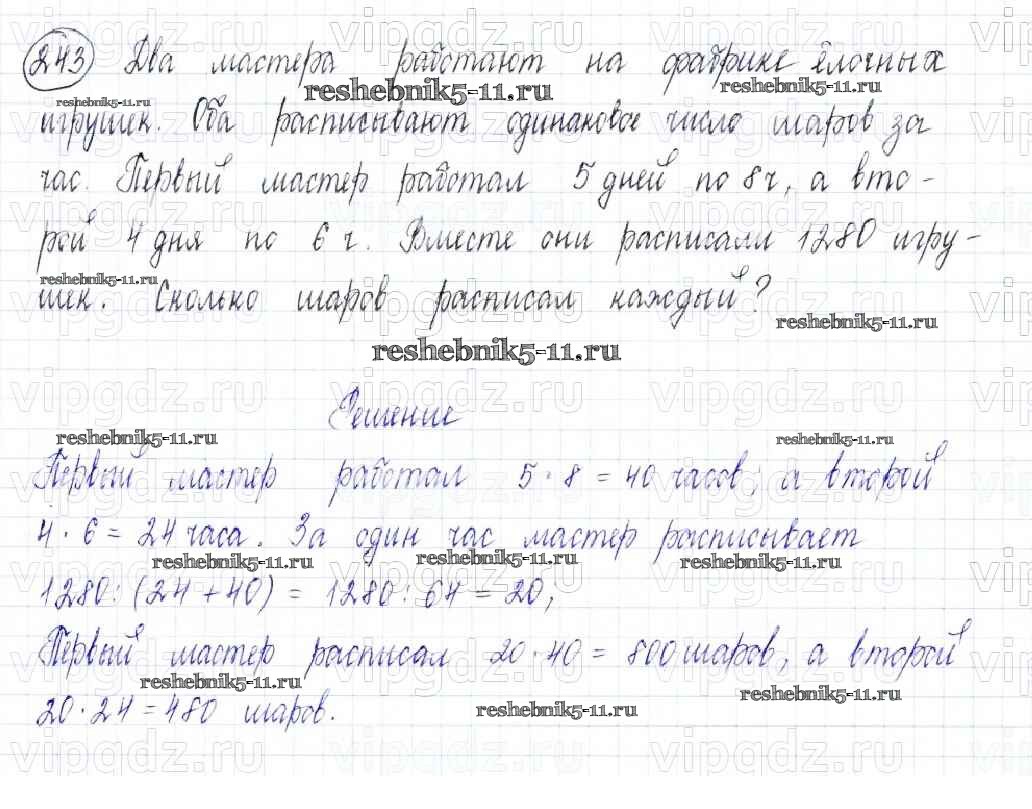 243 Два мастера работают на фабрике ёлочных
игрушек. Оба расписывают одинаковое число шаров за
час. Первый мастер работал 5 дней по 8 ч, а вто-
рой 4 дня по 6 ч. Вместе они расписали 1280 игру-
шек. Сколько шаров расписал каждый?
reshebnik5-11.ru
Решение
Первый мастер работал 5 · 8 = 40 часов, а второй
4 · 6 = 24 часа. За один час мастер расписывает
1280 : (24 + 40) = 1280 : 64 = 20;
Первый мастер расписал 20 · 40 = 800 шаров, а второй
20 · 24 = 480 шаров.
vipgdz.ru